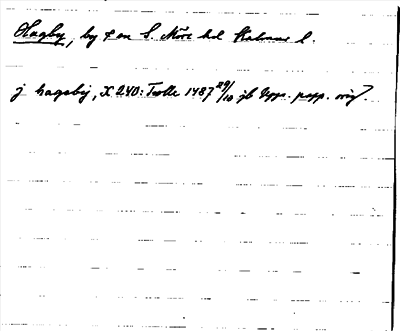 Hagby, by o en S. Möre hd Kalmar l.
j hagaby, X 240: Trolle 1487 29/10 jb Upps. papp. orig.